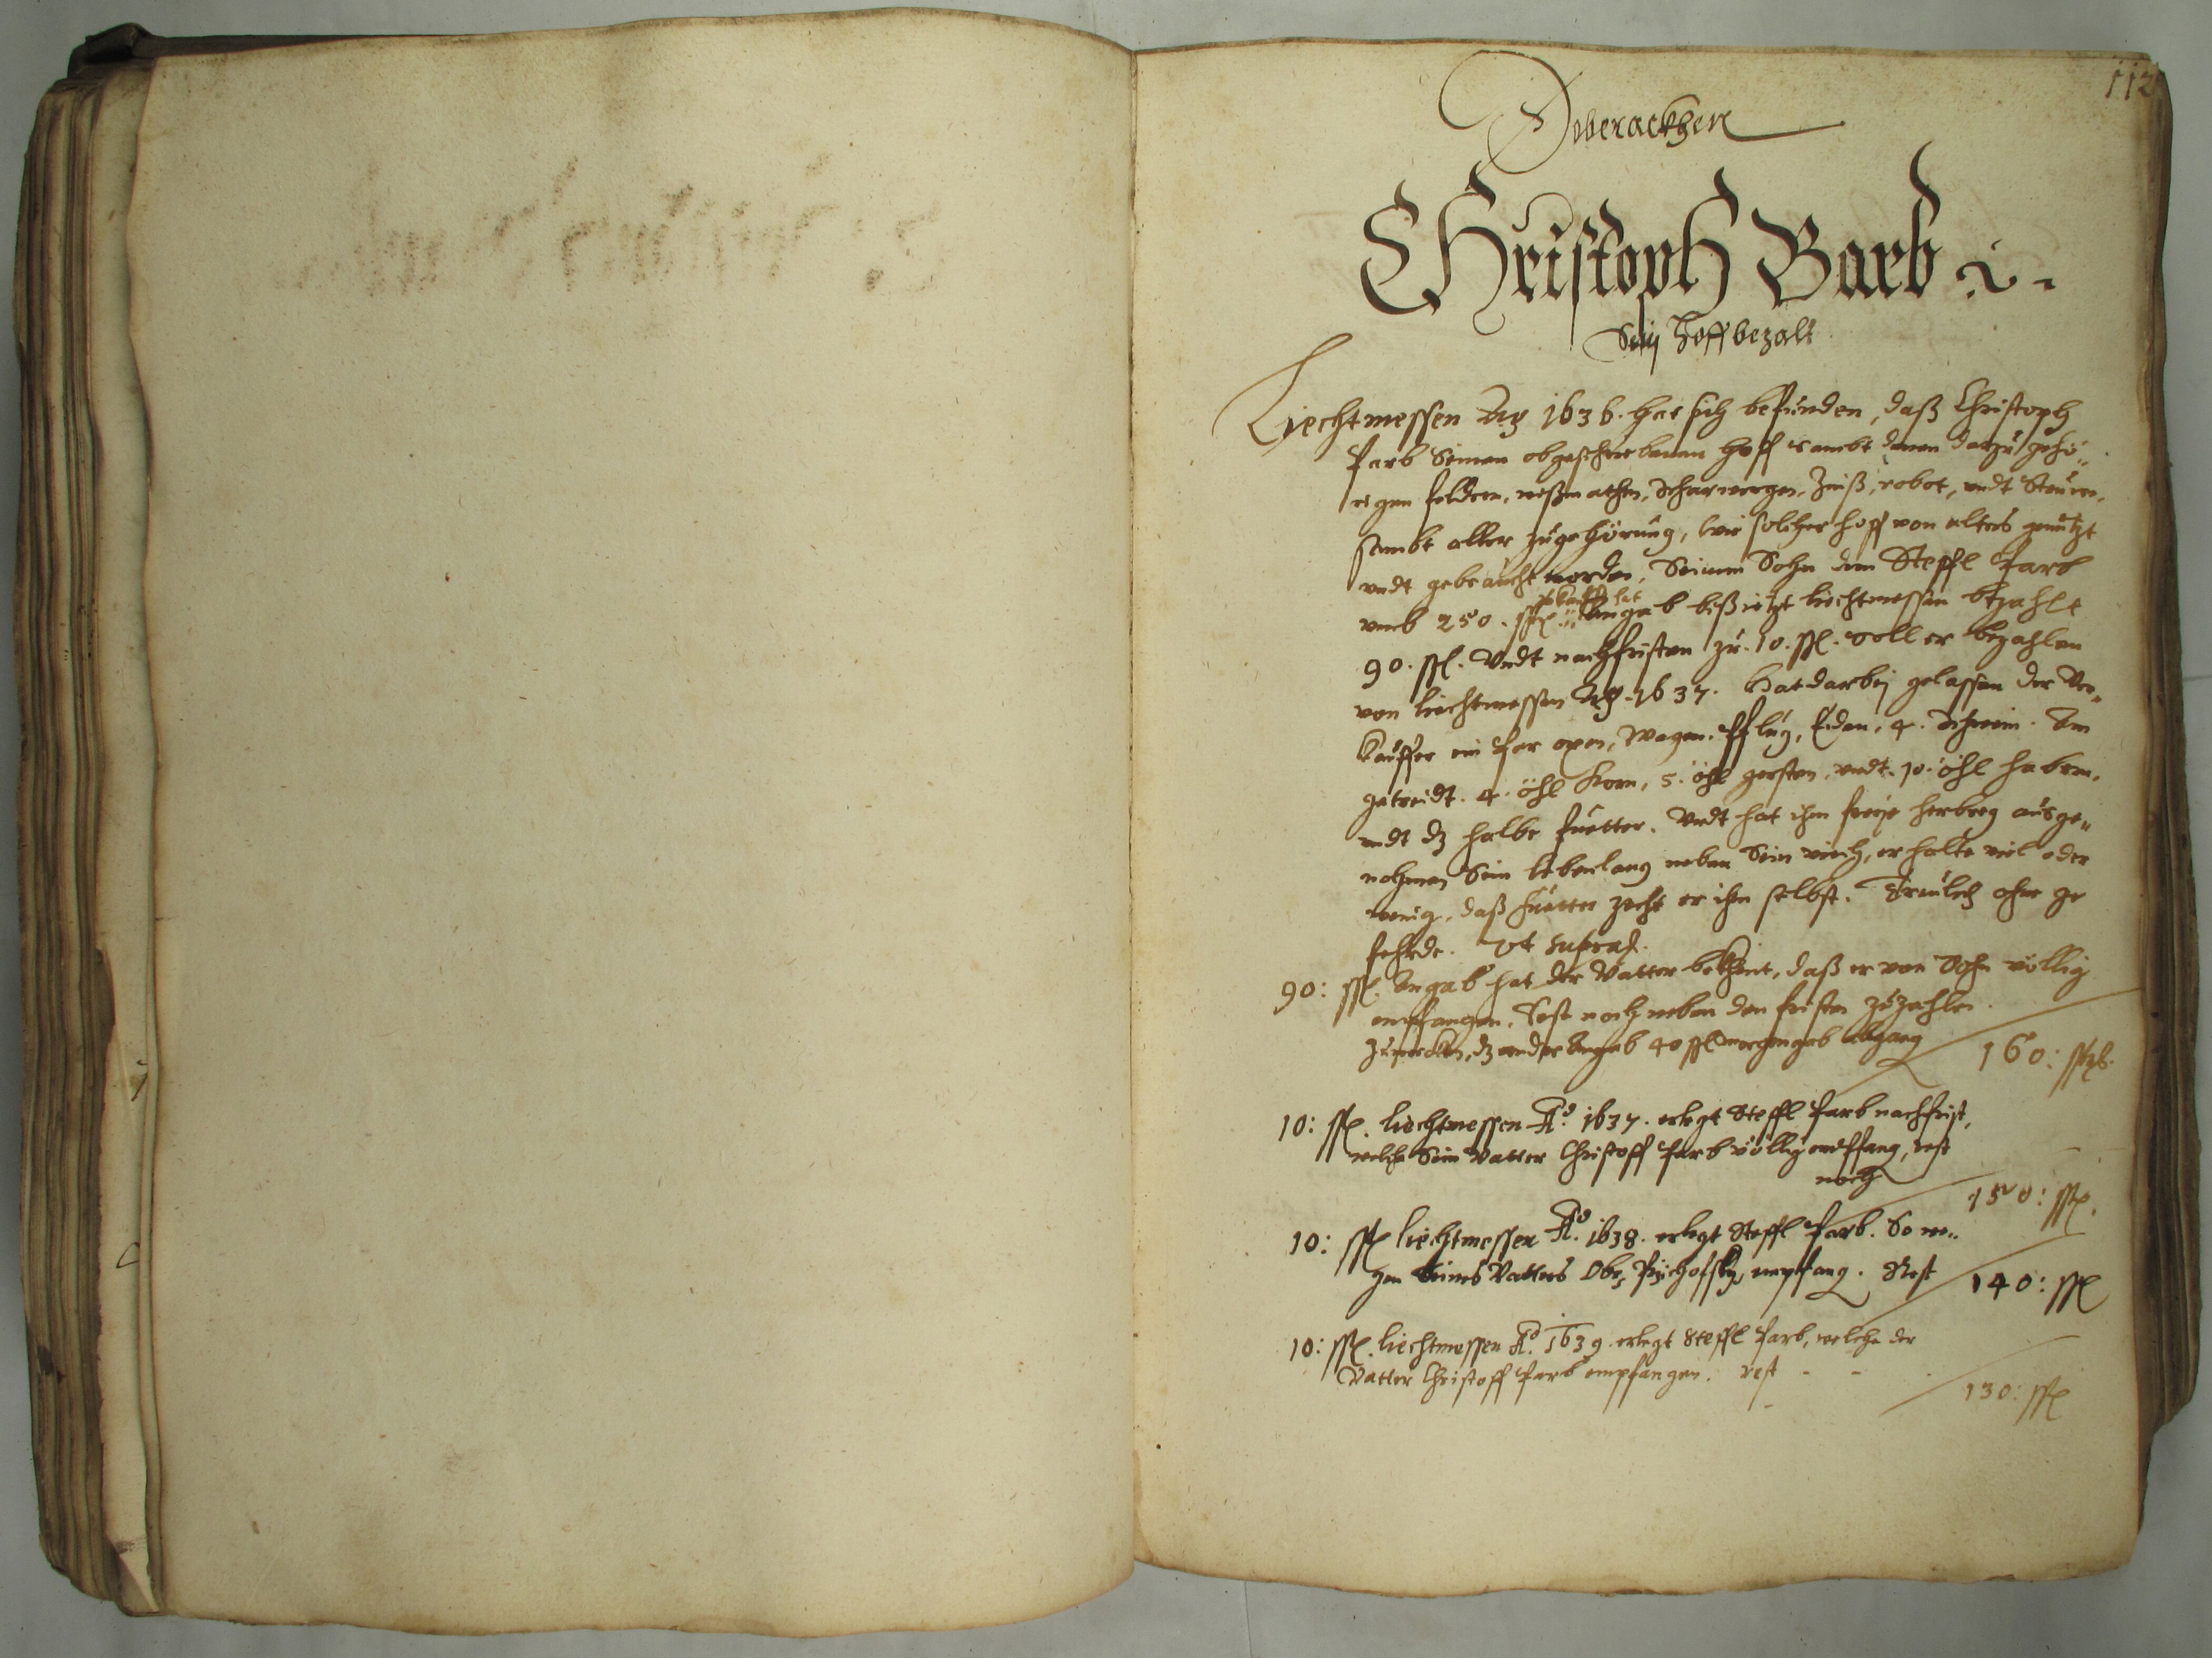 112
Oberackhern
Christoph Barb
Sein Hoff bezalt
Liechtmessen Ao 1636. hat sich befunden, daß Christoph
Parb Seinen obgeschriebenen Hoff sambt denen darzu gehö„
rigen feldern, wißmathen, Scharwergen, Zinß, robot, undt Steuren,
sambt aller zugehörung, wie solcher hoff von alters genutzt
undt gebraucht worden, Seinem Sohn dem Steffl Parb
verkaufft hat
umb 250. ßl. Angab biß ietzt liechtmessen bezahlt
90. ßl. Undt nachfristen zu 10. ßl. Soll er bezahlen
von liechtmessen Ao 1637. Hat darbey gelassen der Ver„
kauffer ein Par oxen, Wagen, Pflug, Eiden, 4. Schwein. An
getreidt. 4. öhl Korn, 5. öhl gersten, undt 10. öhl habern,
undt dz halbe fuetter. Undt hat ihm freye herberg ausge„
nohmen Sein lebenlang neben Sein viech, er halte viel oder
wenig, daß fuetter zecht er ihm selbst. Treulich ohne ge
fehrde. Ut supra.
90: ßl. Angab hat der Vatter bekhent, daß er von Sohn völlig
empfangen. Rest noch neben den fristen zuzahlen
zumercken, dz an der Angab 40 ßl morgengab abgang 160: ßl.
10: ßl. Liechtmessen Ao. 1637. erlegt Steffl Parb nachfrist,
welche Sein Vatter Christoff Parb völlig empfang, rest
noch 150: ßl.
10: ßl Liechtmessen Ao. 1638. erlegt Steffl Parb. So we„
gen Seines Vatters empfang. Rest 140: ßl
10: ßl. Liechtmessen Ao. 1639. erlegt Steffl Parb, welche der
Vatter Christoff Parb empfangen. rest - - 130: ßl